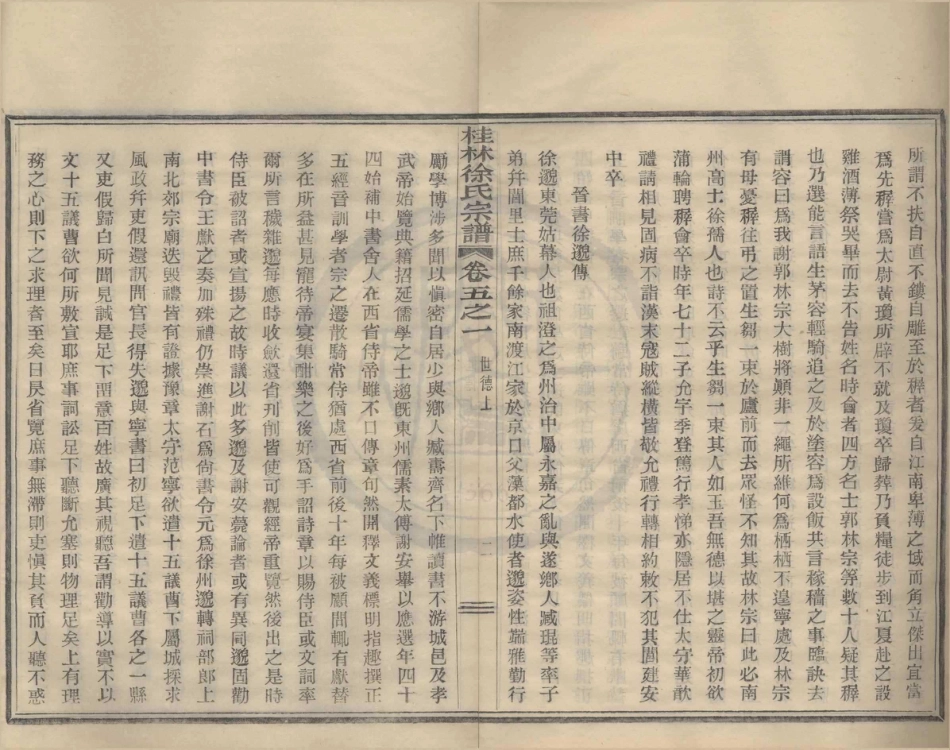 所謂不扶自直不鏤自雕至於穉者爰自江南卑薄之域而角立傑出宜當
爲先穉嘗爲太尉黃瓊所辟不就及瓊卒歸葬乃負糧徒步到江夏赴之設
雞酒薄祭哭畢而去不告姓名時會者四方名士郭林宗等數十人疑其穉
也乃選能言語生茅容輕騎追之及於塗容爲設飯共言稼穡之事臨訣去
謂容曰爲我謝郭林宗大樹將顛非一繩所維何爲栖栖不遑寧處及林宗
有母憂穉往弔之置生芻一束於廬前而去眾怪不知其故林宗曰此必南
州高士徐孺人也詩不云乎生芻一束其人如玉吾無德以堪之靈帝初欲
蒲輪聘穉會卒時年七十二子允字季登篤行孝悌亦隱居不仕太守華歆
禮請相見固病不詣漢末寇賊縱橫皆敬允禮行轉相約敕不犯其閭建安
中卒
晉書徐邈傳
徐邈東莞姑幕人也祖澄之爲州治中屬永嘉之亂與遂鄉人臧琨等率子
弟幷閭里士庶千餘家南渡江家於京口父藻都水使者邈姿性端雅勤行
桂林徐氏宗譜 卷五之一 世德上 二
勵學博涉多聞以愼密自居少與鄉人臧壽齊名下帷讀書不游城邑及孝
武帝始覽典籍招延儒學之士邈旣東州儒素太傅謝安舉以應選年四十
四始補中書舍人在西省侍帝雖不口傳章句然開釋文義標明指趣撰正
五經音訓學者宗之遷散騎常侍猶處西省前後十年每被顧問輒有獻替
多在所益甚見寵待帝宴集酣樂之後好爲手詔詩章以賜侍臣或文詞率
爾所言穢雜邈每應時收斂還省刋削皆使可觀經帝重覽然後出之是時
侍臣被詔者或宣揚之故時議以此多邈及謝安薨論者或有異同邈固勸
中書令王獻之奏加殊禮仍崇進謝石爲尙書令元爲徐州邈轉祠部郎上
南北郊宗廟迭毀禮皆有證據豫章太守范寧欲遣十五議曹下屬城採求
風政幷吏假還訊問官長得失邈與寧書曰初足下遣十五議曹各之一縣
又吏假歸白所聞見誠是足下畱意百姓故廣其視聽吾謂勸導以實不以
文十五議曹欲何所敷宣耶庶事詞訟足下聽斷允塞則物理足矣上有理
務之心則下之求理者至矣日昃省覽庶事無滯則吏愼其負而人聽不惑